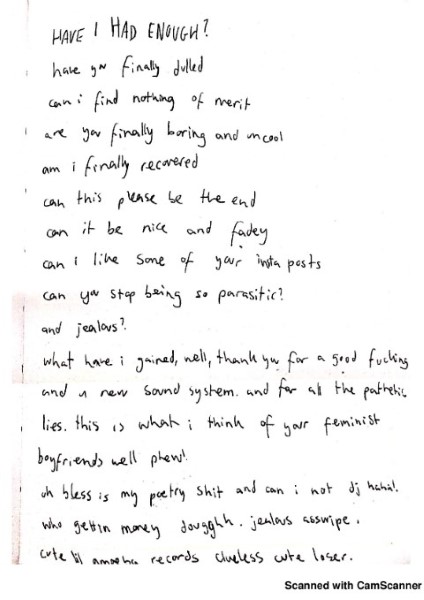 HAVE I HAD ENOUGH?
have you finally dulled
can i find nothing of merit
are you finally boring and uncool
am i finally recovered
can this please be the end
can it be nice and fadey
can i like some of your insta posts
can you stop being so parasitic?
and jealous?
what have i gained, well, thank you for a good fucking
and a new sound system. and for all the pathetic
lies. this is what i think of your feminist
boyfriends well phew!
oh bless is my poetry shit and can i not dj haha!
who gettin money dougghh. jealous asswipe.
cute lil records clueless cute loser.
Scanned with CamScanner